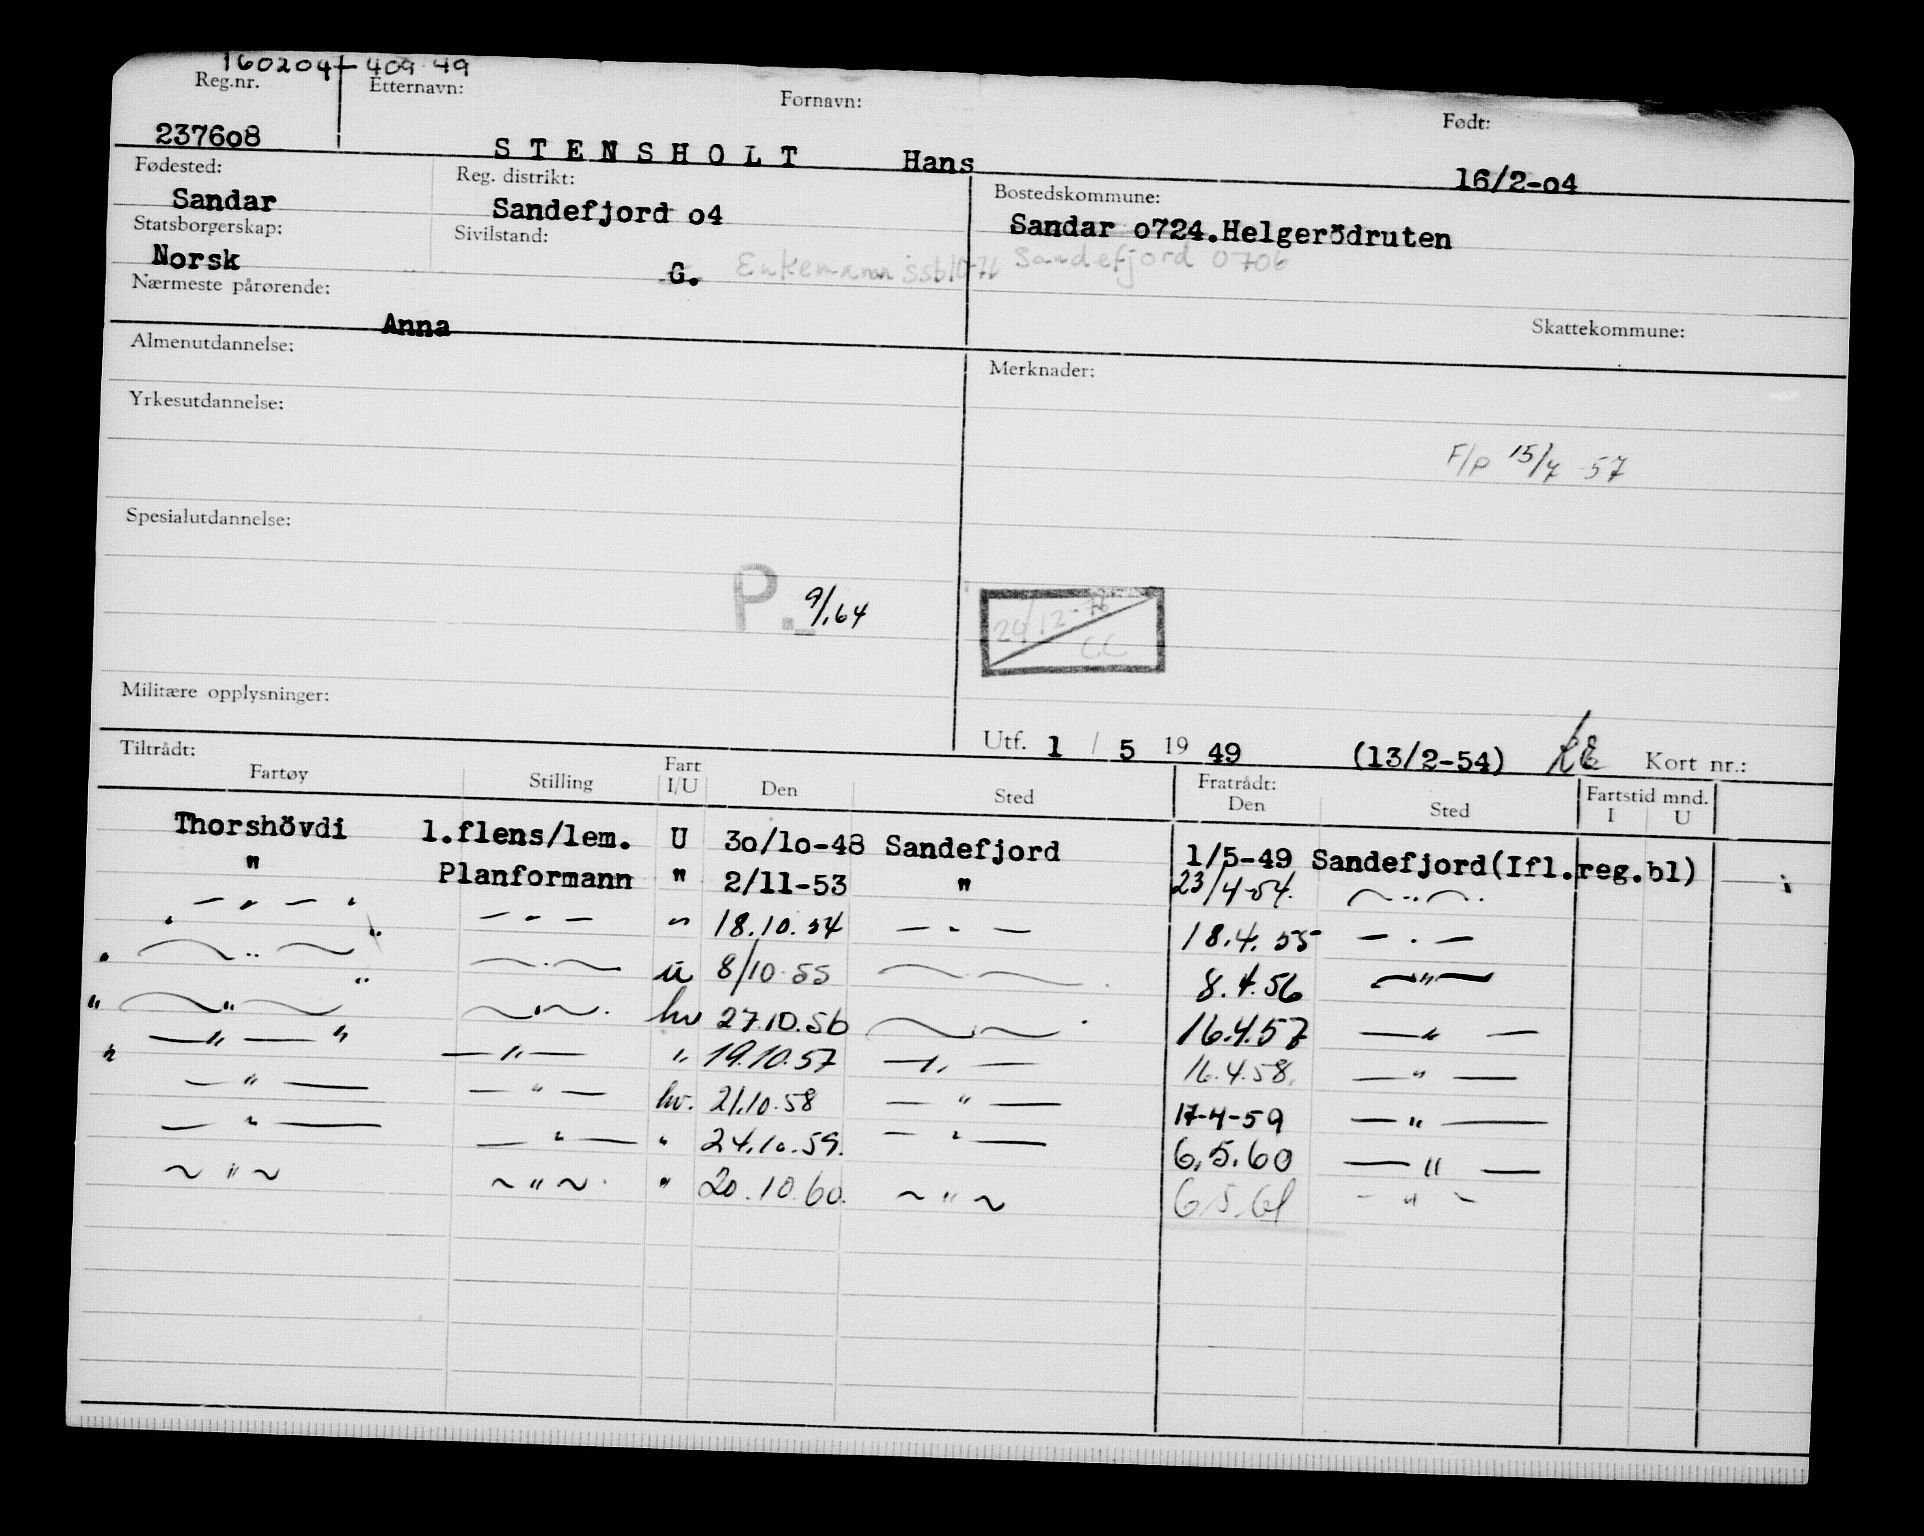 160204 - 409 49
Reg.nr. Etternavn: Fornavn: Født:
237608 STENSHOLT Hans 16/2-o4
Fødested: Reg. distrikt: Bostedskommune:
Sandar Sandefjord o4 Sandar o724.Helgerödruten
Statsborgerskap: Sivilstand: Sandefjord 0706
Norsk G. Enkemann ssb 10-76
Nærmeste pårørende:
Anna Skattekommune:
Almenutdannelse: Merknader:
Yrkesutdannelse:
F/p 15/7 57
Spesialutdannelse:
P. 9/1.64 20/12-76
CC
Militære opplysninger:
Utf. 1 / 5 19 49 (13/2-54) Kort nr.:
Tiltrådt: Fart Fratrådt: Fartstid mnd.
Fartøy Stilling I/U Den Sted Den Sted I U
Thorshövdi 1.flens/lem. U 3o/lo-48 Sandefjord 1/5-49 Sandefjord(Ifl.reg.bl)
" Planformann " 2/11-53 " 23/4-54. — " —
— " — " — " — " 18.10.54 — " — 18.4.55 — " —
— " — " — " — u 8/10 55 — " — 8.4.56 — " —
" — " — — " — hv 27.10.56 — " — 16.4.57 — " —
— " — " — " — " 19.10.57 — " — 16.4.58. — " —
" — " — — " — hv. 21.10.58 — " — 17-4-59 — " —
— " — — " — " 24.10.59. — " — 6.5.60 — " —
~ " ~ ~ " ~ " 20.10.60. ~ " ~ 6.5.61 - " -